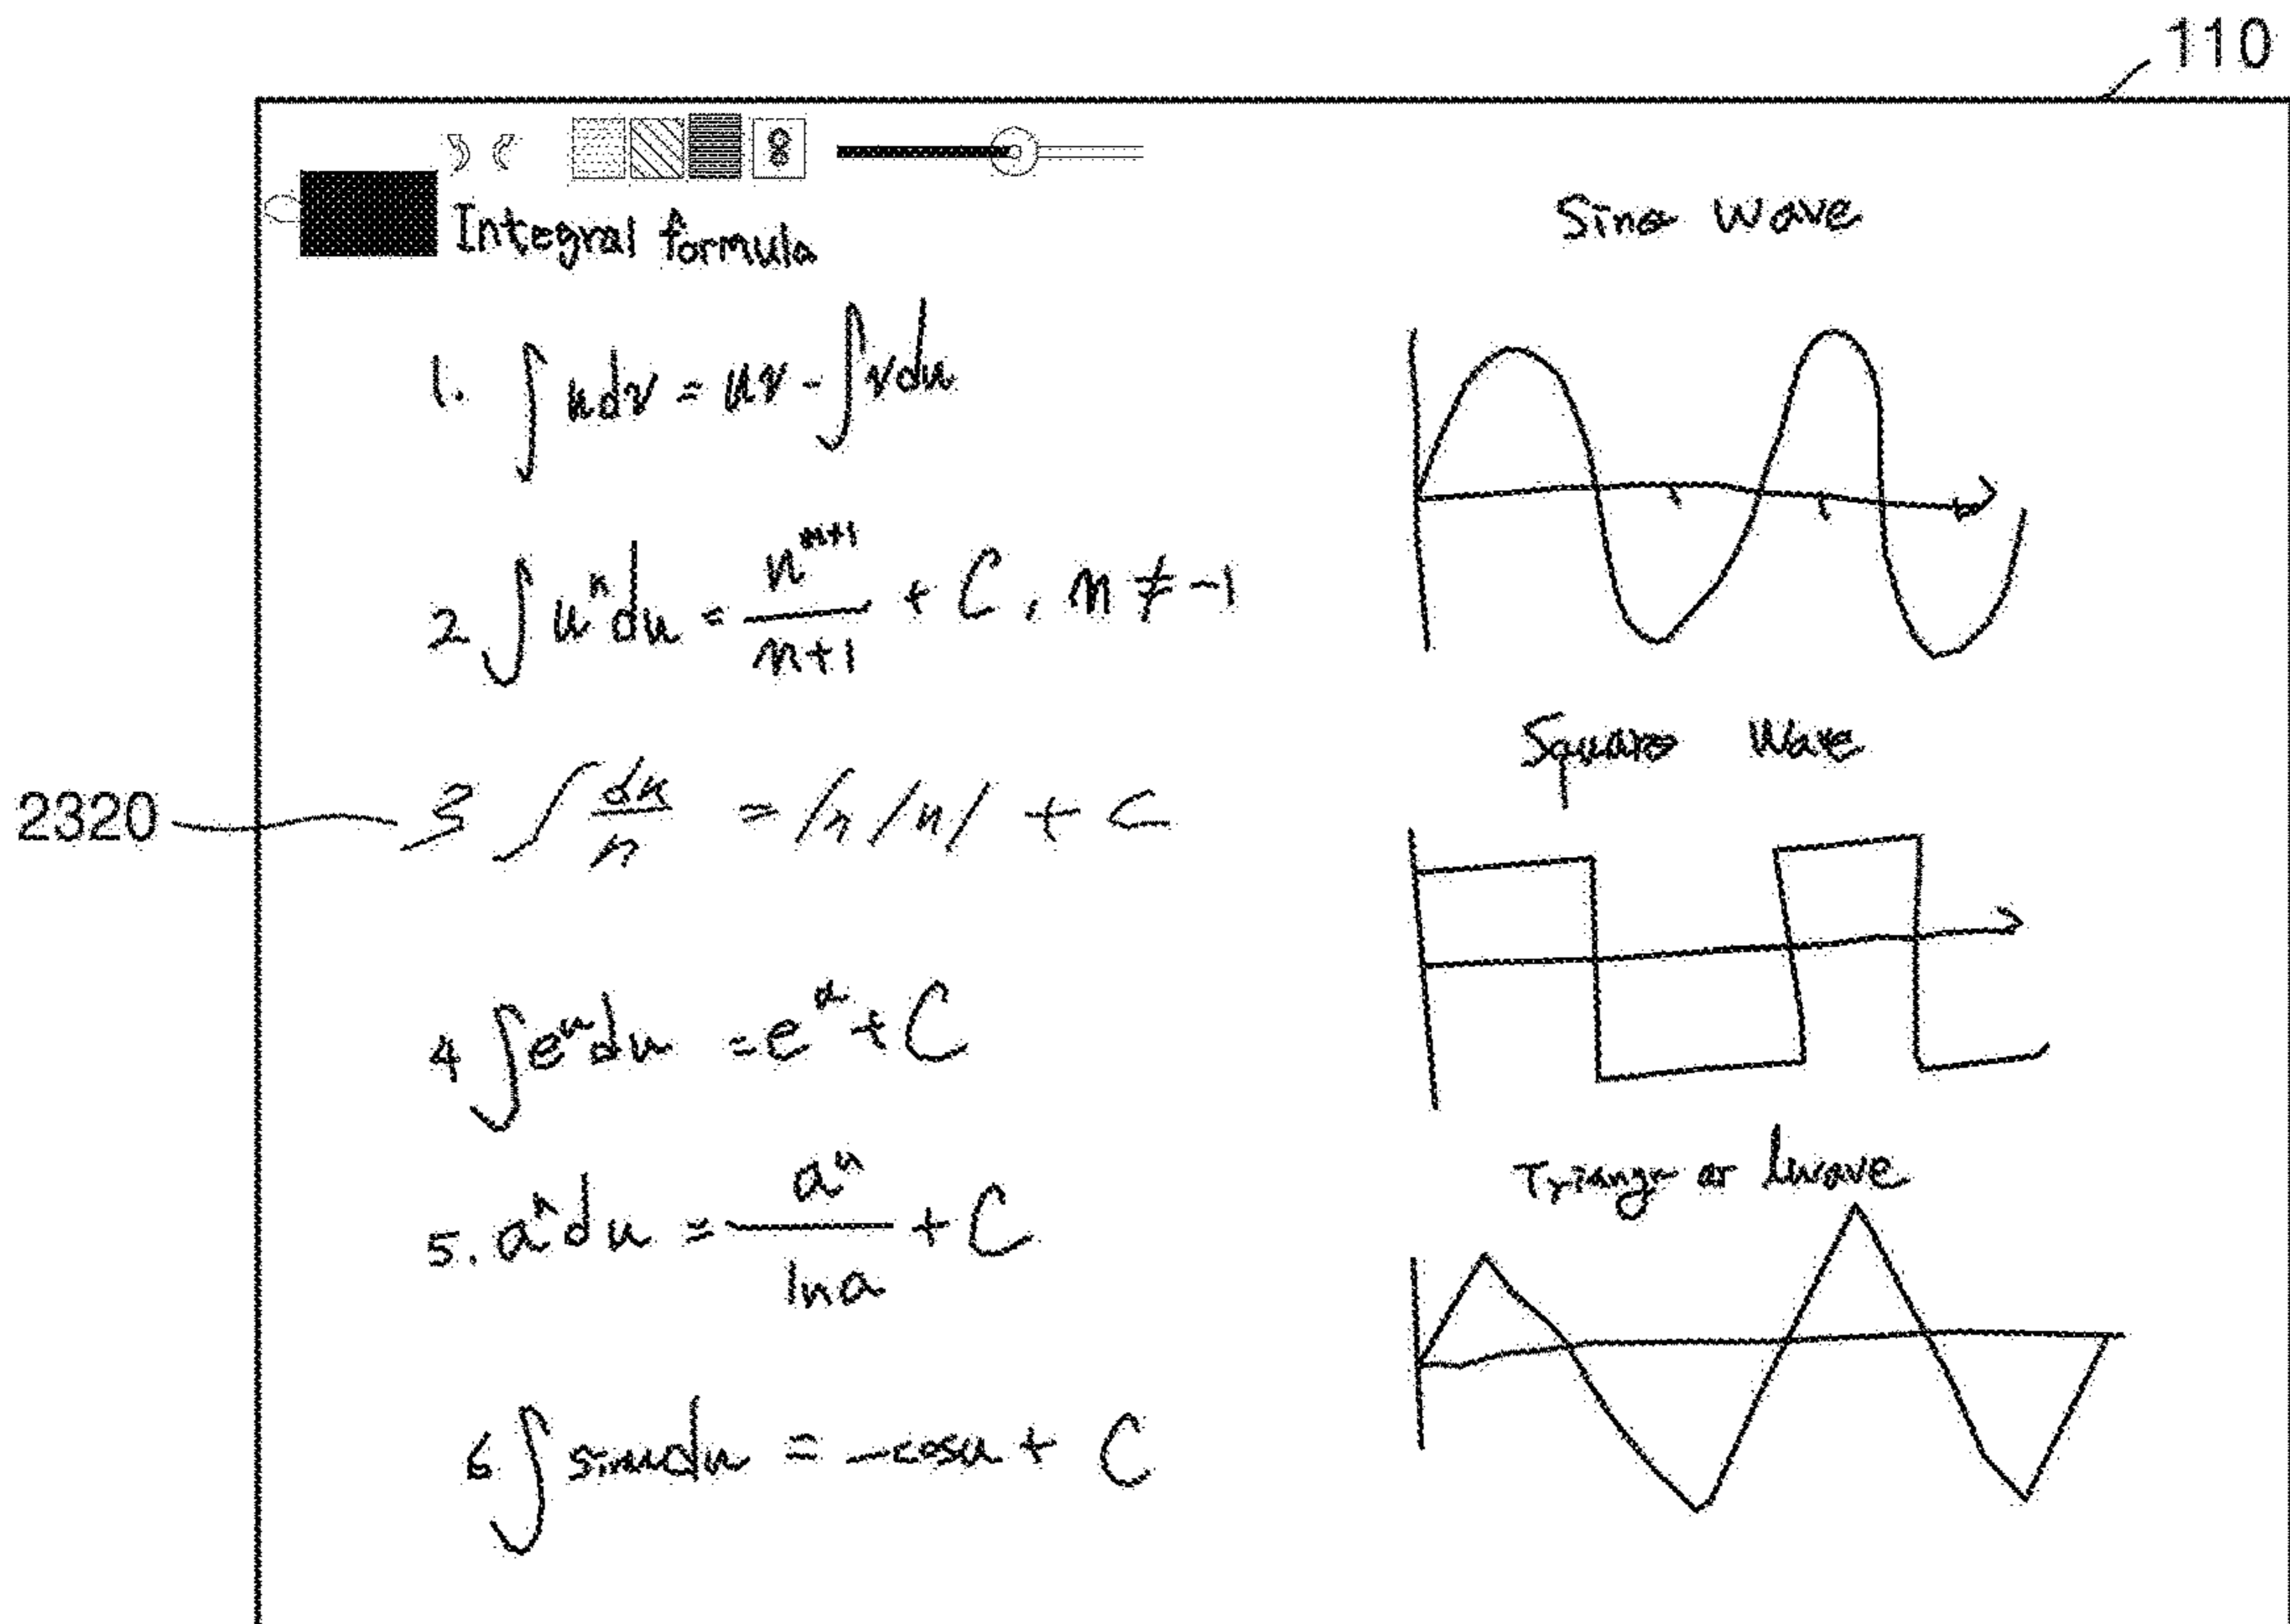 110
Integral formula
1. ∫ u dv = uv - ∫ v du
2 ∫ u^n du = u^{n+1}/n+1 + C, n ≠ -1
2320
3 ∫ du/u = ln |u| + C
4 ∫ e^u du = e^u + C
5. a^u du = a^u/ln a + C
6 ∫ sin u du = -cos u + C
Sine Wave
Square Wave
wave